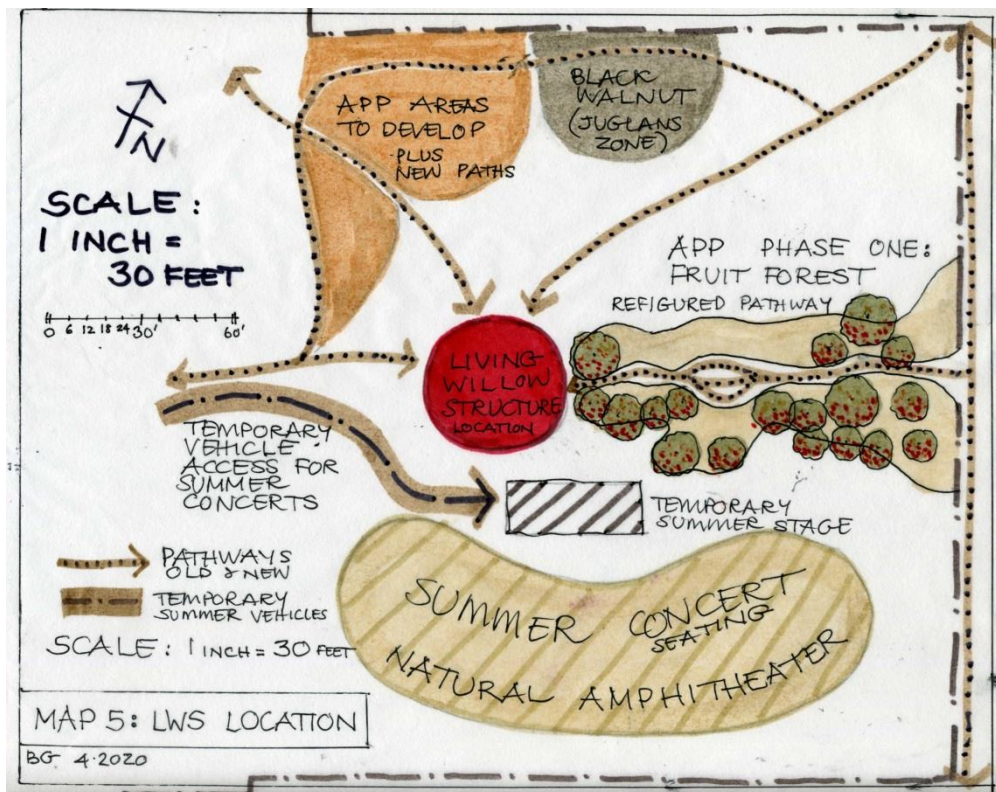 N
SCALE:
1 INCH =
30 FEET
0 6 12 18 24 30' 60'
APP AREAS
TO DEVELOP
PLUS
NEW PATHS
BLACK
WALNUT
(JUGLANS
ZONE)
APP PHASE ONE:
FRUIT FOREST
REFIGURED PATHWAY
LIVING
WILLOW
STRUCTURE
LOCATION
TEMPORARY
VEHICLE
ACCESS FOR
SUMMER
CONCERTS
TEMPORARY
SUMMER STAGE
PATHWAYS
OLD & NEW
TEMPORARY
SUMMER VEHICLES
SCALE: 1 INCH = 30 FEET
SUMMER CONCERT
SEATING
NATURAL AMPHITHEATER
MAP 5: LWS LOCATION
BG 4·2020